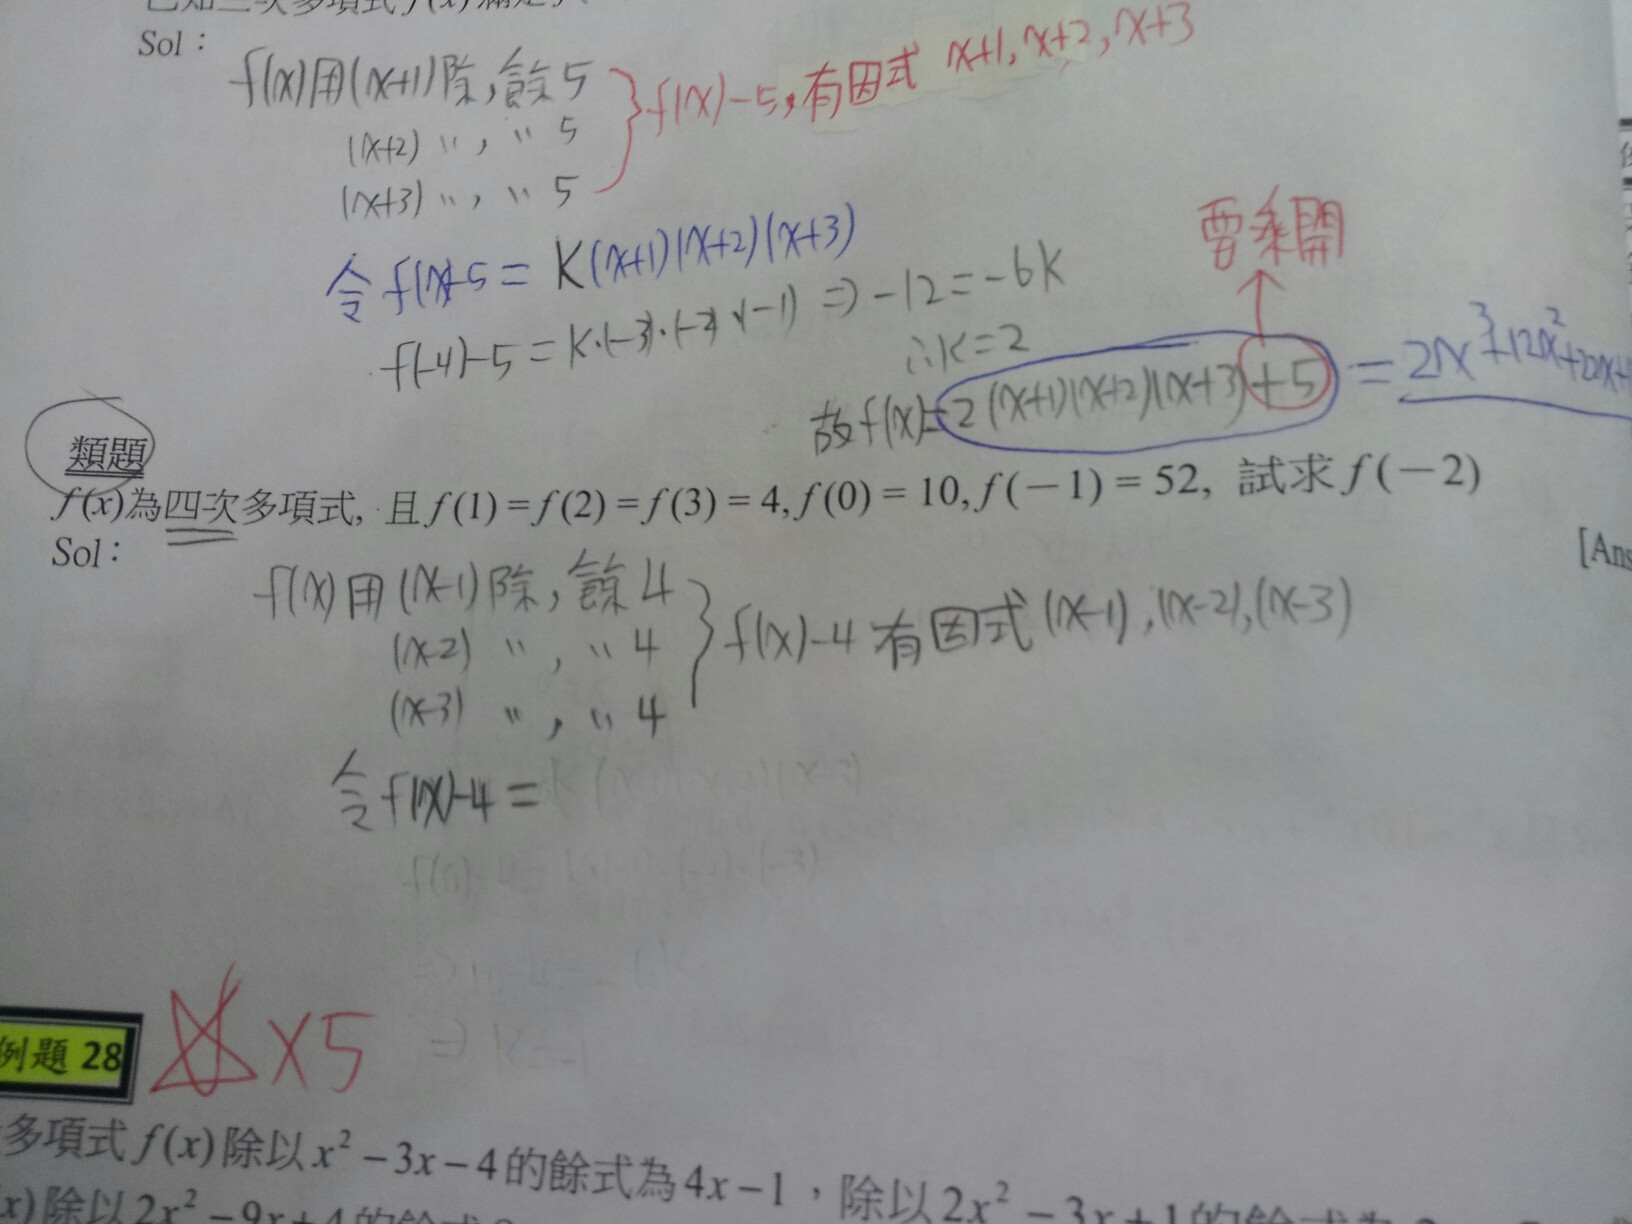 已知三次多項式 f(x) 滿足
Sol：
f(x)用(x+1)除,餘5
(x+2) 〃 , 〃 5
(x+3) 〃 , 〃 5
f(x)-5,有因式 x+1, x+2, x+3
令 f(x)-5 = K(x+1)(x+2)(x+3)
f(-4)-5 = K·(-3)·(-2)·(-1) ⇒ -12 = -6K
∴K=2
要乘開
故f(x)=2(x+1)(x+2)(x+3)+5 = 2x³+12x²+22x+
類題
f(x)為四次多項式, 且 f(1) = f(2) = f(3) = 4, f(0) = 10, f(－1) = 52, 試求 f(－2)
Sol：
[Ans
f(x)用(x-1)除,餘4
(x-2) 〃 , 〃 4
(x-3) 〃 , 〃 4
f(x)-4 有因式 (x-1),(x-2),(x-3)
令f(x)-4 =
例題 28
☆×5
多項式 f(x) 除以 x² － 3x － 4 的餘式為 4x － 1，除以 2x² － 3x + 1 的餘式為
(x) 除以 2x² － 9x + 4 的餘式